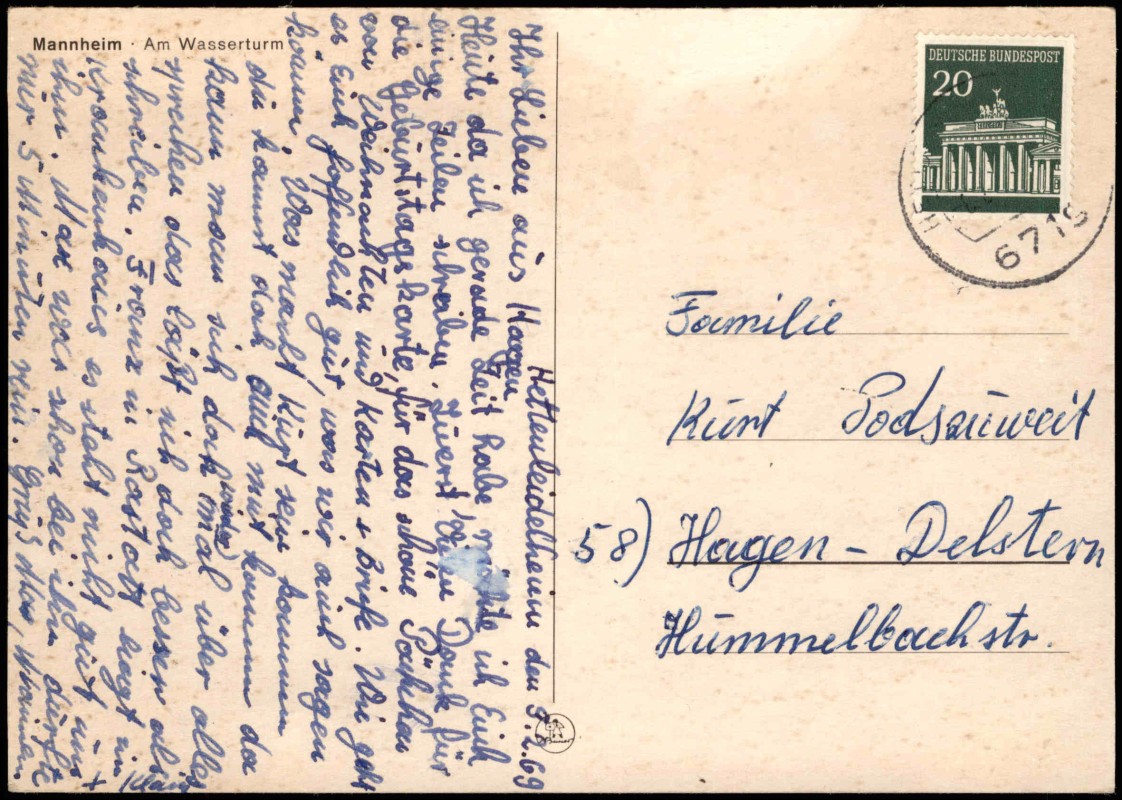 Mannheim · Am Wasserturm
Hettenleidelheim den 9.2.69
Ihr Lieben aus Hagen
Heute da ich gerade Zeit habe möchte ich Euch
einige Zeilen schreiben. Zuerst Dank für
die Geburtstagskarte, für das schöne Päckchen
von Weihnachten und Karten + Briefe. Wie geht
es Euch hoffendlich gut, was wir auch sagen
können. Was macht Kurt sein kommen
du kannst doch auch mit kommen da
kann man sich doch mal (wieder) über alles
sprechen das läßt sich doch besser als
schreiben. Franz in Rastatt liegt im
Krankenhaus es steht nicht gut um
ihn. Max war schon bei ihm dürfte
nur 5 Minuten rein. Gruß
DEUTSCHE BUNDESPOST
20
6719
Familie
Kurt Podsauweit
58) Hagen - Delstern
Hummelbachstr.